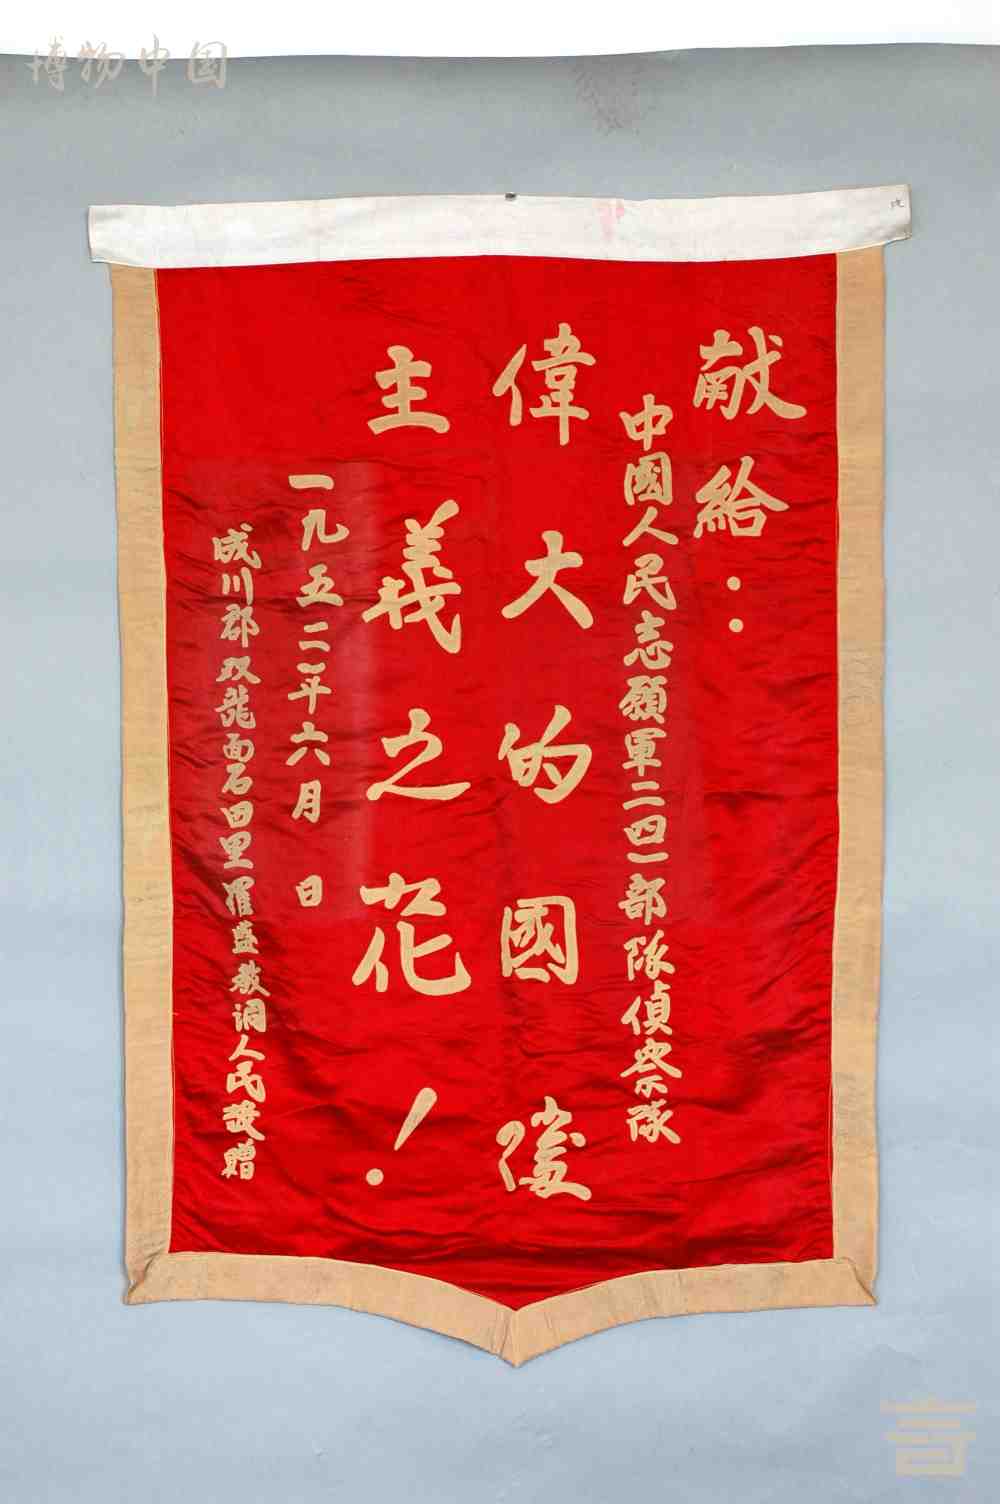 博物中国
献給：
中國人民志願軍二四一部隊偵察隊
偉大的國際
主義之花！
一九五二年六月 日
成川郡双龍面石田里羅盛教洞人民敬贈